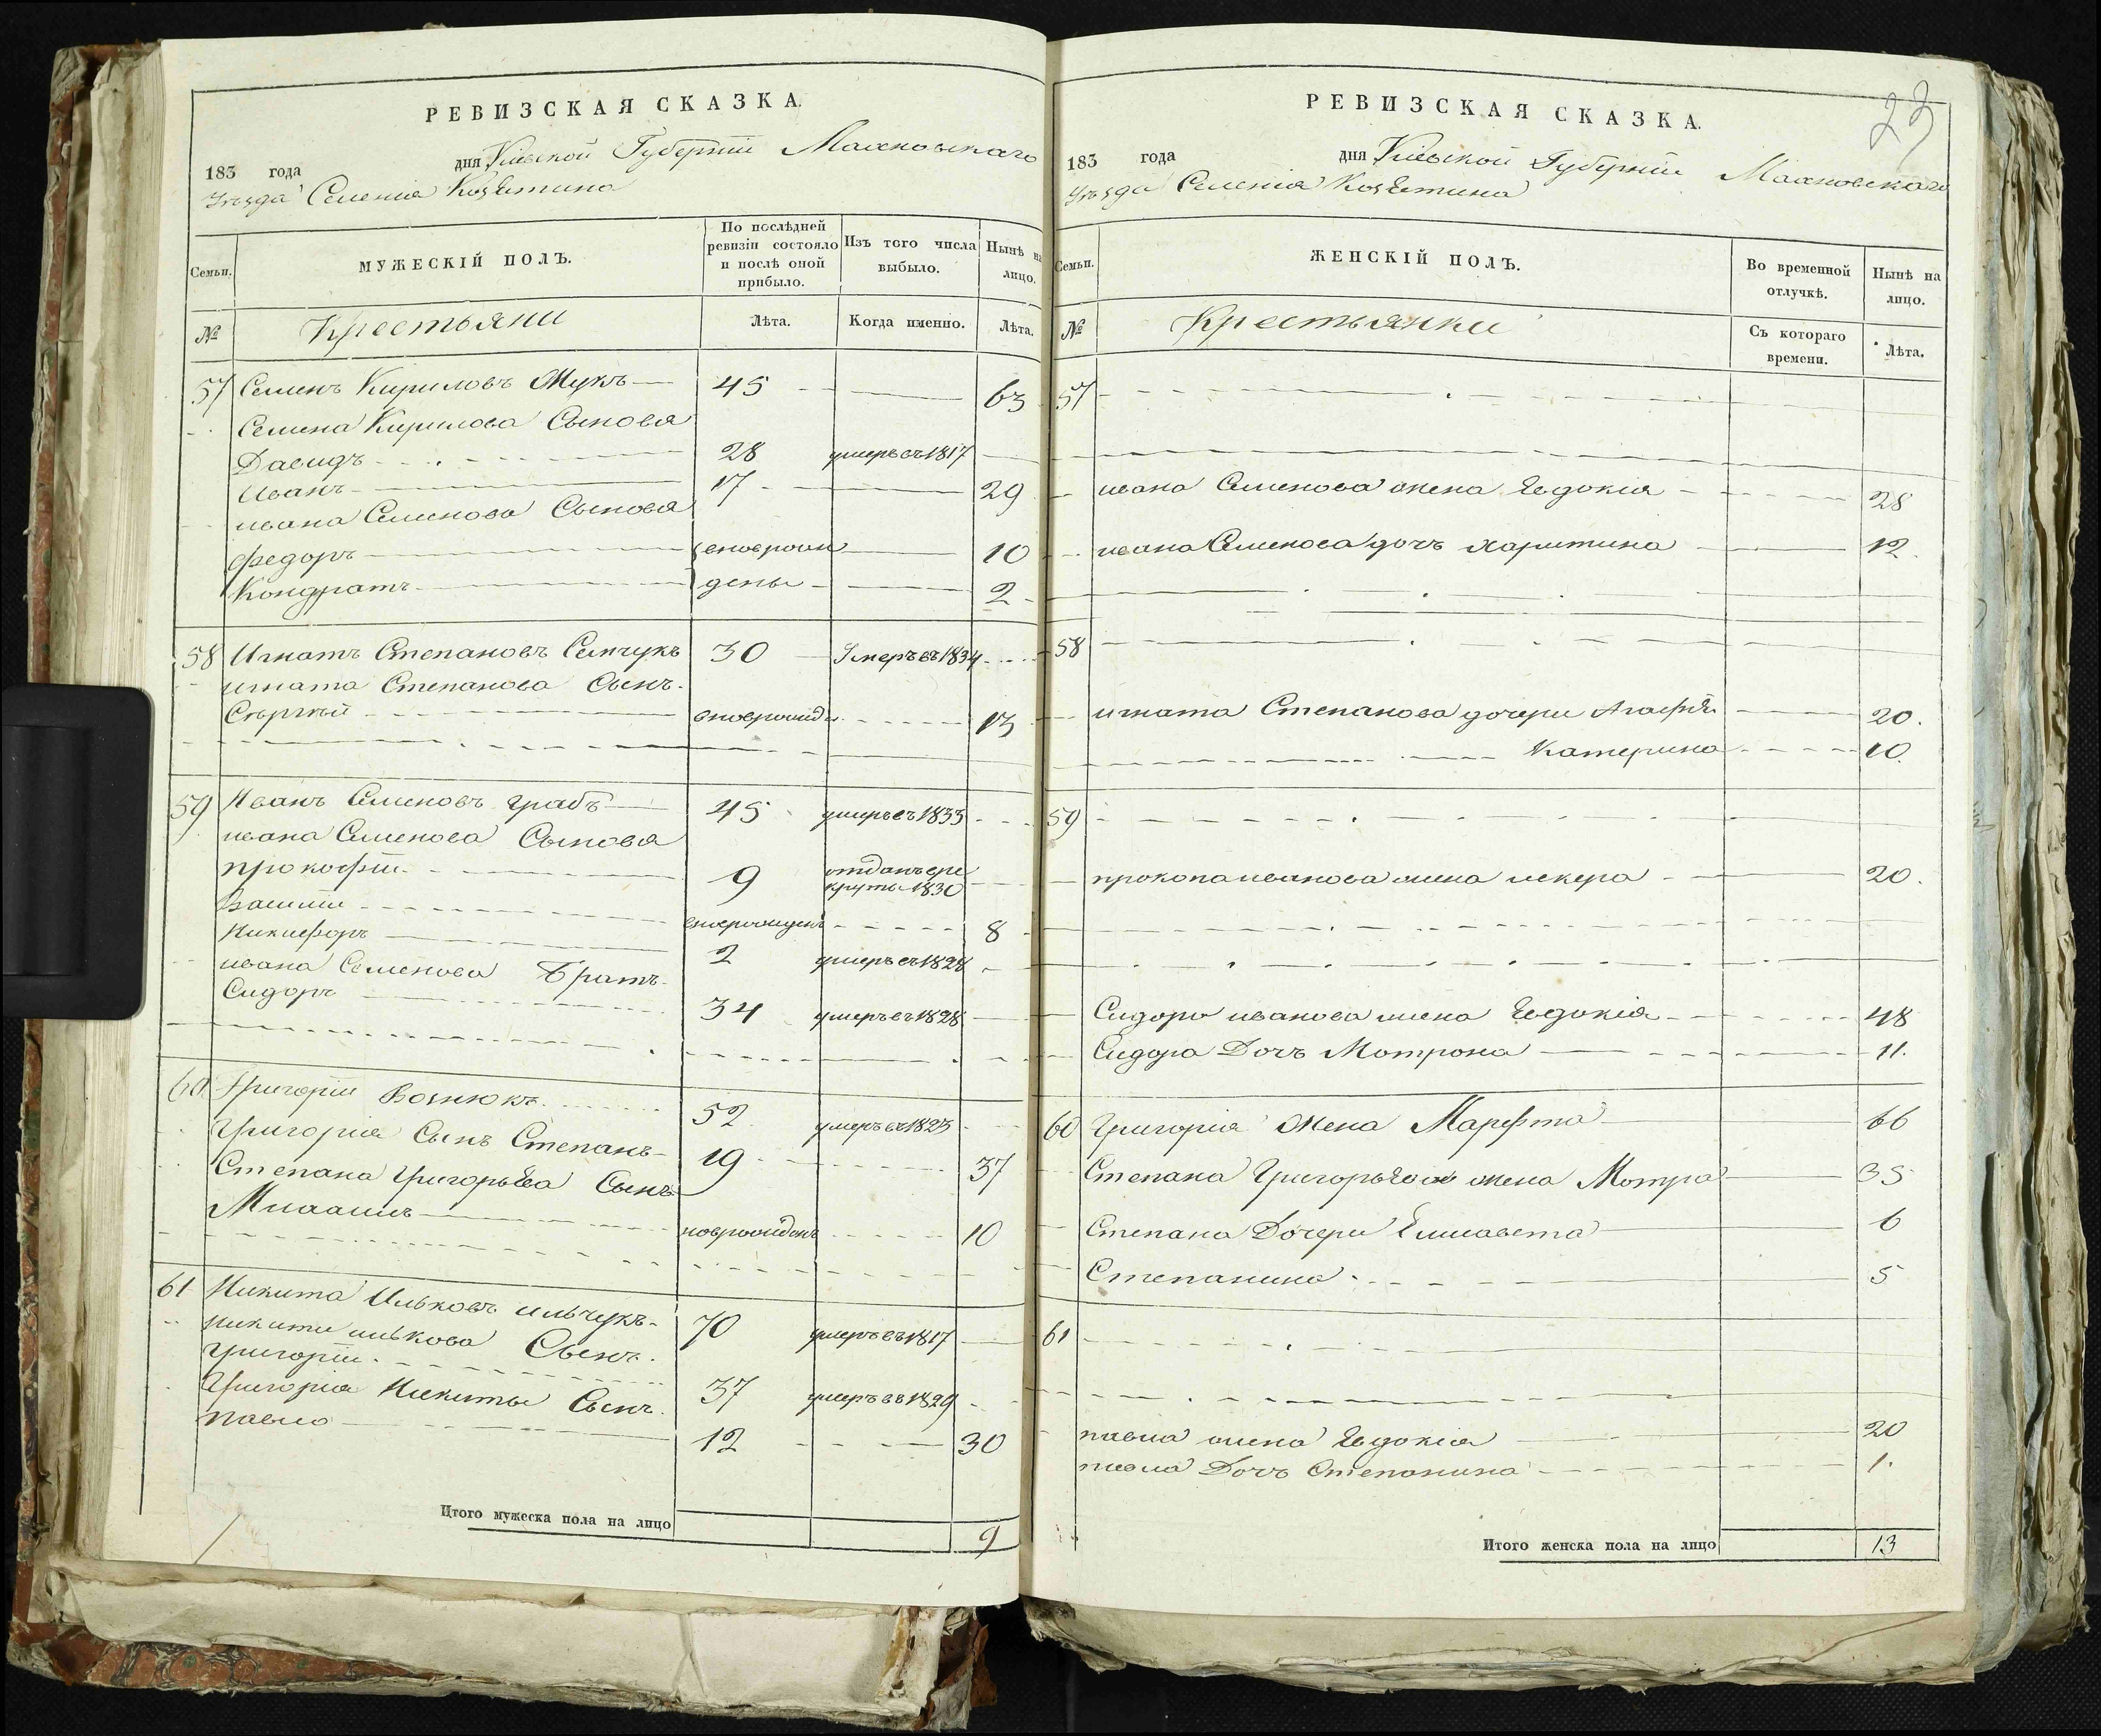 РЕВИЗСКАЯ СКАЗКА.
183 года дня Кіевской Губерніи Махновскаго
Уѣзда Селенія Козятина
Семьи.
МУЖЕСКІЙ ПОЛЪ.
По послѣдней ревизіи состояло и послѣ оной прибыло.
Изъ того числа выбыло.
Нынѣ на лицо.
№ Крестьяни Лѣта. Когда именно. Лѣта.
57 Семенъ Кириловъ Жукъ 45 63
Семена Кирилова Сыновья
Давидъ 28 умеръ въ 1817
Иванъ 17 29
ивана Семенова Сыновья
федоръ вноврожд 10
Кондратъ дены 2
58 Игнатъ Степановъ Семчукъ 30 Умеръ въ 1834
игната Степанова Сынъ
Сѣргѣй вноврожд 13
59 Иванъ Семеновъ грабъ 45 умеръ въ 1833
ивана Семенова Сыновья
прокофій 9 отданъ в ре
круты 1830
Василій вноврожден 8
Никифоръ 2 умеръ въ 1828
ивана Семенова Братъ
Сидоръ 34 умеръ въ 1828
60 Григорій Вознюкъ 52 умеръ въ 1825
Григорія Сынъ Степанъ 19 37
Степана Григорьева Сынъ
Михаилъ новрожденъ 10
61 Никита Ильковъ ильчукъ 70 умеръ въ 1817
никиты илькова Сынъ
григорій 37 умеръ въ 1829
Григорія Никиты Сынъ
павло 12 30
Итого мужеска пола на лицо 9
23
РЕВИЗСКАЯ СКАЗКА.
183 года дня Кіевской Губерніи Махновскаго
Уѣзда Селенія Козятина
Семьи.
ЖЕНСКІЙ ПОЛЪ.
Во временной отлучкѣ.
Нынѣ на лицо.
№ Крестьянки Съ котораго времени. Лѣта.
57
ивана Семенова жена Евдокія 28
ивана Семенова дочъ харитина 12
58
игната Степанова дочери Агафія 20.
Катерина 10.
59
прокопа иванова жена 20.
Сидора иванова жена Евдокія 48
Сидора Дочъ Мотрона 11.
60 Григорія жена Марфта 66
Степана Григорьева жена Мотра 35
Степана Дочери Елисавета 6
Степанида 5
61
павла жена Евдокія 20
павла Дочъ Степанида 1.
Итого женска пола на лицо 13